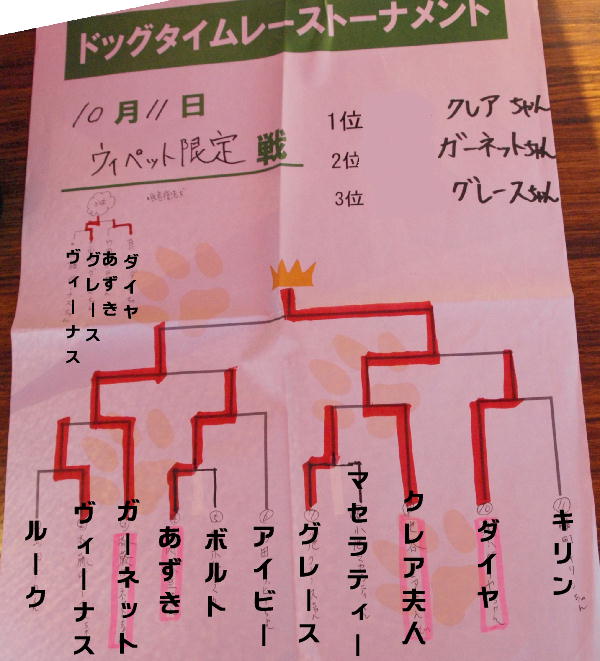 ドッグタイムレーストーナメント
10月11日
ウィペット限定 戦
1位 クレアちゃん
2位 ガーネットちゃん
3位 グレースちゃん
ヴィーナス
グレース
あずき
ダイヤ
ルーク
ヴィーナス
ガーネット
あずき
ボルト
アイビー
グレース
マセラティー
クレア夫人
ダイヤ
キリン